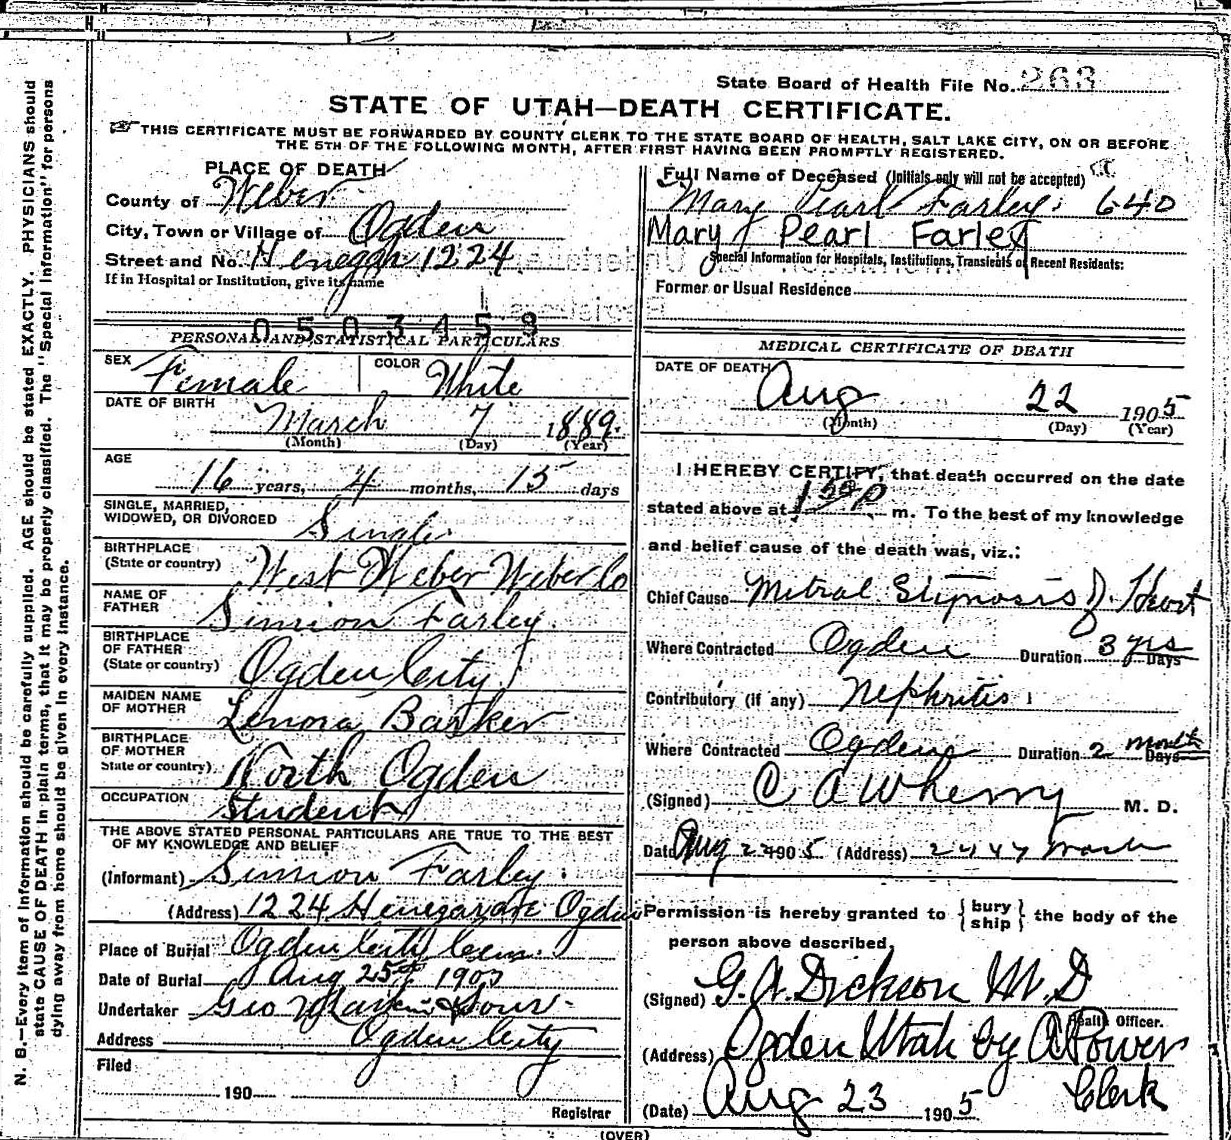 State Board of Health File No. 263
STATE OF UTAH—DEATH CERTIFICATE.
THIS CERTIFICATE MUST BE FORWARDED BY COUNTY CLERK TO THE STATE BOARD OF HEALTH, SALT LAKE CITY, ON OR BEFORE
THE 5TH OF THE FOLLOWING MONTH, AFTER FIRST HAVING BEEN PROMPTLY REGISTERED.
PLACE OF DEATH
County of Weber
City, Town or Village of Ogden
Street and No. 1224
If in Hospital or Institution, give its name
0 5 0 3 4 5 8
PERSONAL AND STATISTICAL PARTICULARS
SEX Female COLOR White
DATE OF BIRTH March 7 1889.
(Month) (Day) (Year)
AGE
16 years, 4 months, 15 days
SINGLE, MARRIED,
WIDOWED, OR DIVORCED Single
BIRTHPLACE
(State or country) West Weber Weber Co
NAME OF
FATHER Simion Farley.
BIRTHPLACE
OF FATHER
(State or country) Ogden City.
MAIDEN NAME
OF MOTHER Lenora Barker
BIRTHPLACE
OF MOTHER
State or country) North Ogden
OCCUPATION Student
THE ABOVE STATED PERSONAL PARTICULARS ARE TRUE TO THE BEST
OF MY KNOWLEDGE AND BELIEF
(Informant) Simion Farley.
(Address) 1224 Ogden
Place of Burial Ogden City Cem.
Date of Burial Aug 25th 190
Undertaker Geo
Address Ogden City
Filed
190
Registrar
Full Name of Deceased (Initials only will not be accepted)
Mary Pearl Farley. 640
Mary Pearl Farley
Special Information for Hospitals, Institutions, Transients or Recent Residents:
Former or Usual Residence
MEDICAL CERTIFICATE OF DEATH
DATE OF DEATH
Aug 22 1905
(Month) (Day) (Year)
I HEREBY CERTIFY, that death occurred on the date
stated above at 1 50 p m. To the best of my knowledge
and belief cause of the death was, viz.:
Chief Cause Mitral Stynosis of Heart
Where Contracted Ogden Duration 3 yrs Days
Contributory (if any) Nephritis
Where Contracted Ogden Duration 2 month Days
(Signed) C A Wherry M. D.
Date Aug 1905 (Address)
Permission is hereby granted to {bury ship} the body of the
person above described,
(Signed) G. W. Dickson M.D
Health Officer.
(Address) Ogden Utah by A Power
Clerk
(Date) Aug 23 1905
(OVER)
N. B.—Every item of information should be carefully supplied. AGE should be stated EXACTLY. PHYSICIANS should
state CAUSE OF DEATH in plain terms, that it may be properly classified. The "Special Information" for persons
dying away from home should be given in every instance.